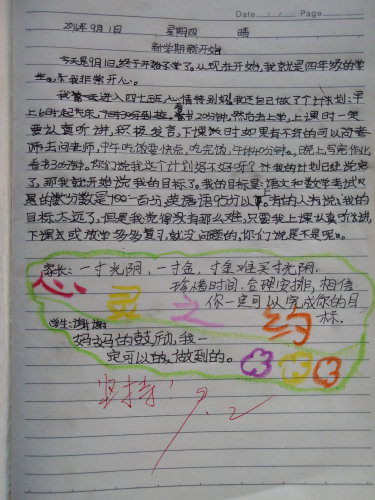 Date Page
2016年9月1日 星期四 晴
新学期新开始
今天是9月1日,终于开始了学了。从现在开始,我就是四年级的学
生,我非常开心。
我第一天进入四七班,心情特别好。我还自己做了个计划:早
上6时起床,看书20分钟,然后去上学,上课时一定
要认真听讲,积极发言,下课时如果有不会的可以问老
师去问老师,中午吃饭要快点,吃完饭,午休40分钟。晚上写完作业
看书30分钟。你们说我这个计划好不好啊?计我的计划已经说完
了,那我就开始说我的目标了。我的目标是:语文和数学考试
尽的数分数是100一百分,英语得95分以下,有的人说,我的
目标太远了,但是我觉得没有那么难,只要我上课认真听讲,
下课或放学多多复习,就没问题的,你们说是不是呢。
家长:一寸光阴、一寸金,寸金难买寸光阴.
珍惜时间,合理安排,相信
你一定可以完成你的目
标.
心灵之约
学生:谢谢
妈妈的鼓励,我一
定可以的。做到的。
坚持!
9.2